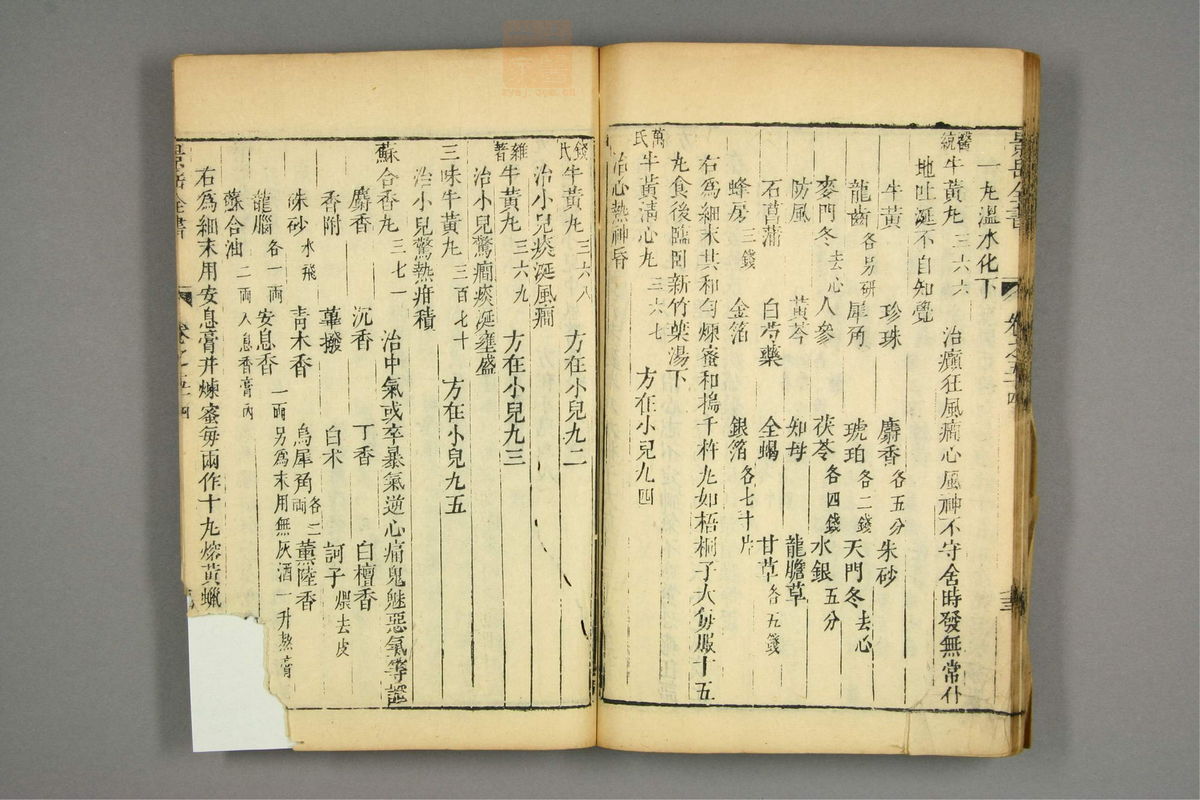 景岳全書
卷之五十四
一丸溫水化下
醫統
牛黃丸三六六　治癲狂風癇心風神不守舍時發無常仆
地吐涎不自知覺
牛黃　珍珠　麝香各五分　朱砂
龍齒各另研　犀角　琥珀各二錢　天門冬去心
麥門冬去心　人參　茯苓各四錢　水銀五分
防風　黃芩　知母　龍膽草
石菖蒲　白芍藥　全蝎　甘草各五錢
蜂房三錢　金箔　銀箔各七十片
右爲細末共和勻煉蜜和搗千杵丸如梧桐子大每服十五
丸食後臨臥新竹葉湯下
萬氏
牛黃淸心丸三六七　方在小兒九四
治心熱神昏
錢氏
牛黃丸三六八　方在小兒九二
治小兒痰涎風癇
維著
牛黃丸三六九　方在小兒九三
治小兒驚癇痰涎壅盛
三味牛黃丸三百七十　方在小兒九五
治小兒驚熱疳積
蘇合香丸三七一　治中氣或卒暴氣逆心痛鬼魅惡氣等證
麝香　沉香　丁香　白檀香
香附　蓽撥　白朮　訶子煨去皮
硃砂水飛　青木香　烏犀角各二兩　薰陸香
龍腦各一兩　安息香一兩另爲末用無灰酒一升熬膏
蘇合油二兩入息香膏內
右爲細末用安息膏并煉蜜每兩作十丸熔黃蠟
景岳全書
卷之五十四